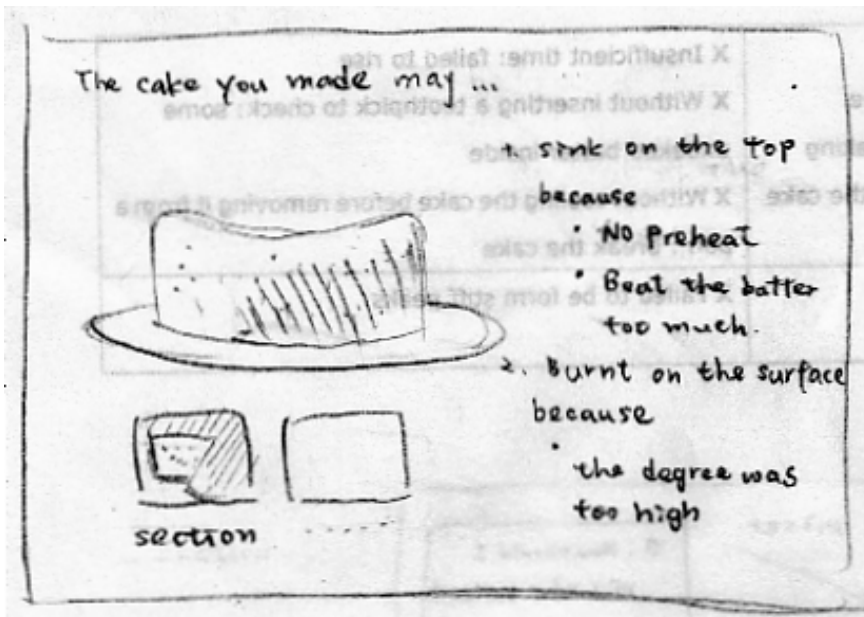 The cake you made may ...
1. sink on the top
because
• No Preheat
• Beat the batter
too much.
2. Burnt on the surface
because
• the degree was
too high
section